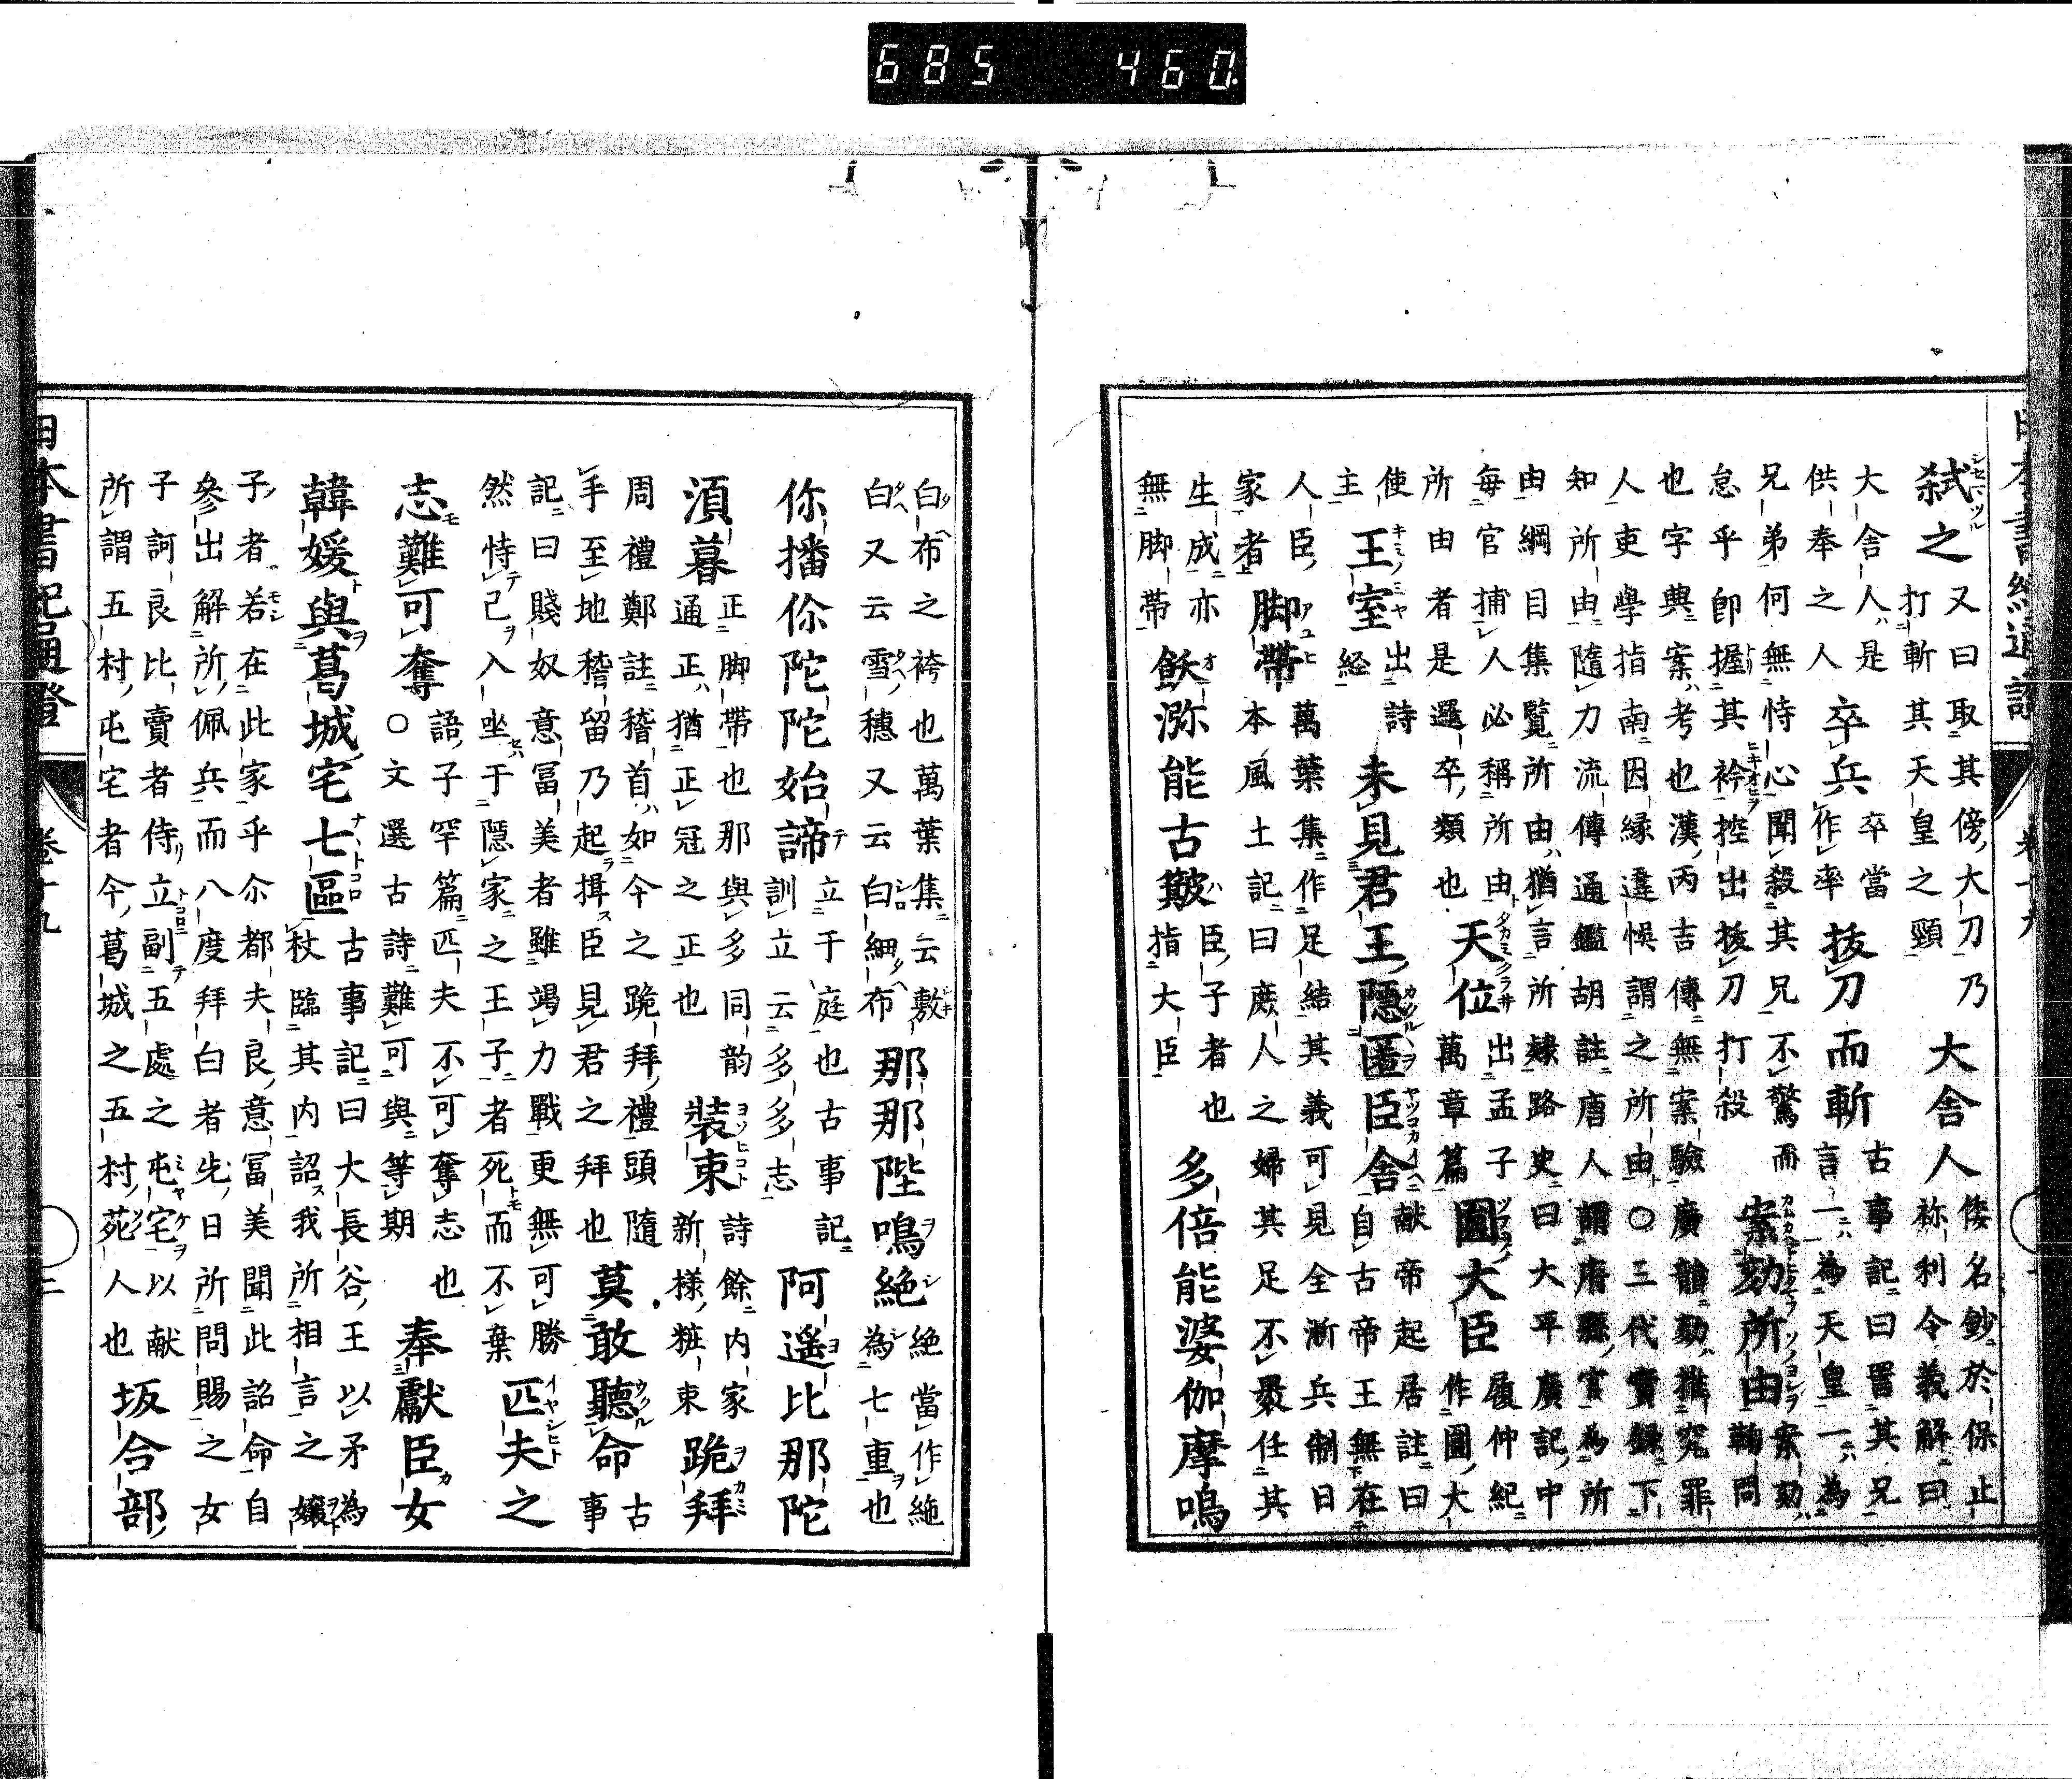 685 460.
弑之
又曰取其傍大刀乃
打斬其天皇之頸
大舎人
倭名鈔於保止
祢利令義解曰
大舎人是
供奉之人
卒兵
卒當
作率
抜刀而斬
古事記曰詈其兄
言一為天皇一為
兄弟何無恃心聞殺其兄不驚而
怠乎即握其衿控出抜刀打殺
案劾所由
案劾
鞫問
也字典案考也漢丙吉傳無案驗廣韻劾推究罪
人吏學指南因縁違悞謂之所由〇三代實録下
知所由隨力流傳通鑑胡註唐人謂府縣官為所
由綱目集覧所由猶言所隷路史曰大平廣記中
毎官捕人必稱所由
所由者是邏卒類也
天位
出孟子
萬章篇
圓大臣
履仲紀
作圓大
使
主
王室
出詩
経
未見君王隠匿臣舎
献帝起居註曰
自古帝王無在
人臣
家者
脚帶
萬葉集作足結其義可見全浙兵制日
本風土記曰庶人之婦其足不褁任其
生成亦
無脚帯
飫瀰能古簸
臣子者也
指大臣
多倍能婆伽摩鳴
白布之袴也萬葉集云敷
白又云雪穗又云白細布
那那陛鳴絶
絶當作絁
為七重也
你播伱陀陀始諦
立于庭也古事記
訓立云多多志
阿遥比那陀
湏暮
正脚帯也那與多同韵
通正猶正冠之正也
装束
詩餘内家
新様粧束
跪拜
周禮鄭註稽首如今之跪拜禮頭隨
手至地稽留乃起揖臣見君之拜也
莫敢聽命
古
事
記曰賤奴意冨美者雖竭力戰更無可勝
然恃己入坐于隠家之王子者死而不棄
匹夫之
志難可奪
語子罕篇匹夫不可奪志也
〇文選古詩難可與等期
奉獻臣女
韓媛與葛城宅七區
古事記曰大長谷王以矛為
杖臨其内詔我所相言之嬢
子者若在此家乎尒都夫良意冨美聞此詔命自
參出解所佩兵而八度拜白者先日所問賜之女
子訶良比賣者侍立副五處之屯宅以献
所謂五村屯宅者今葛城之五村苑人也
坂合部
日本書紀通證